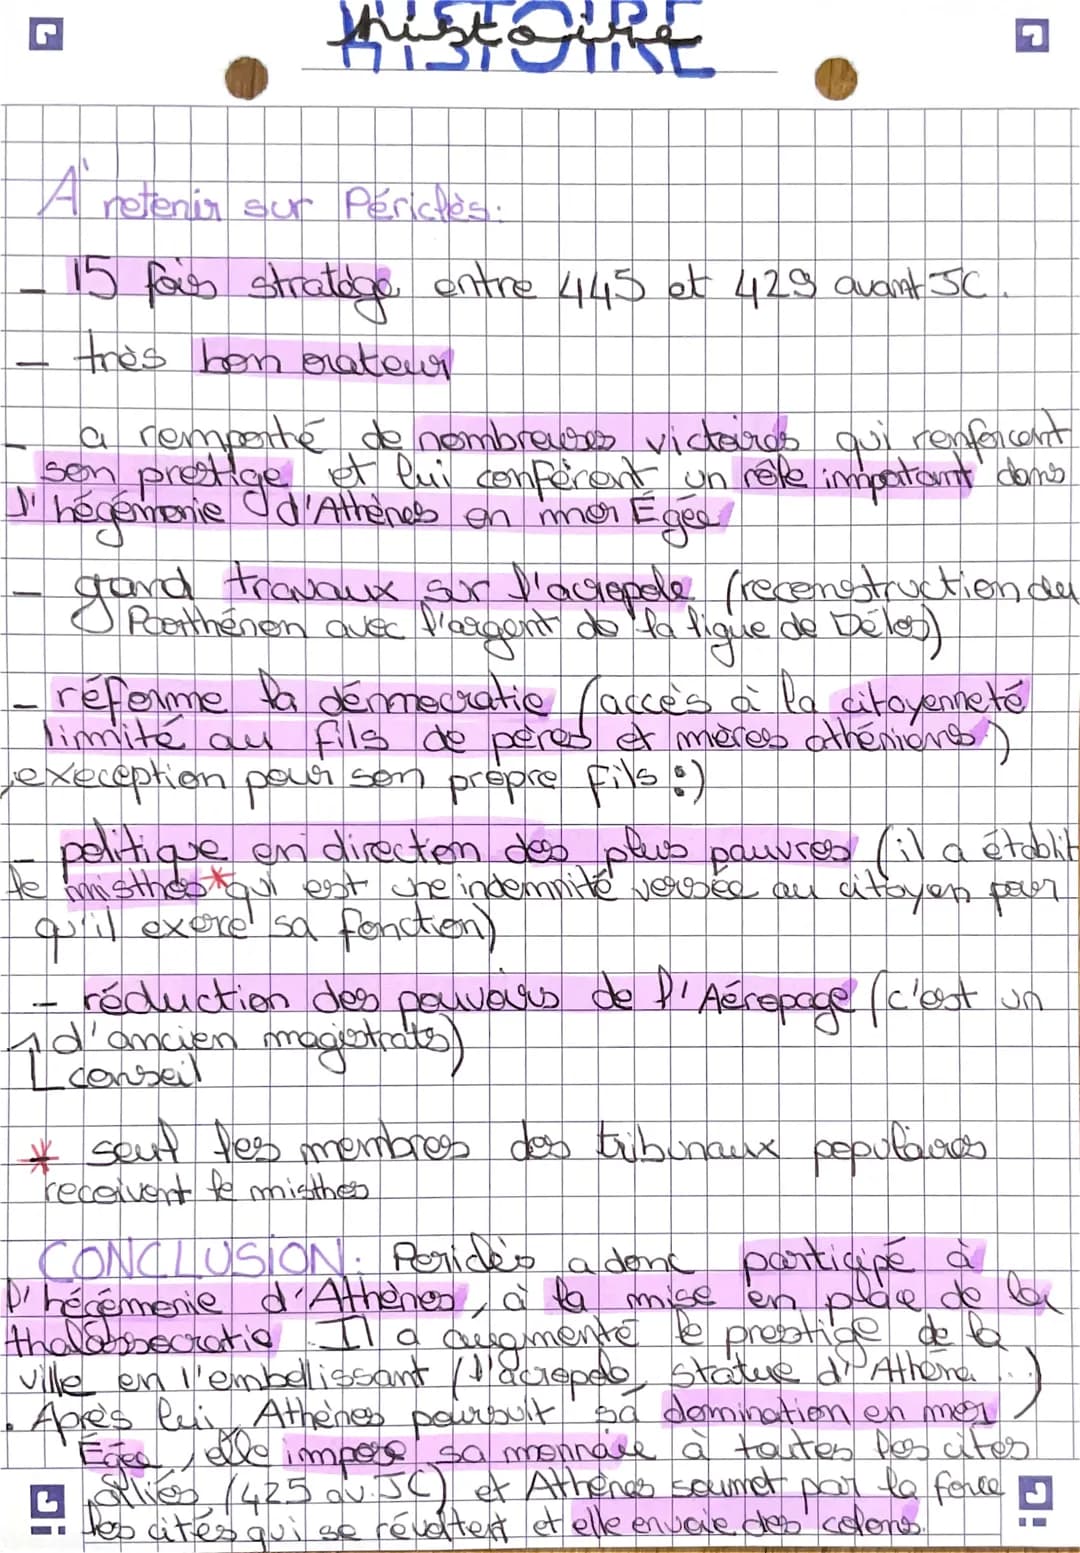 HISTOIRE
histoire
À retenir sur Périclès:
- 15 fois stratège entre 445 et 429 avant JC.
- très bon orateur
- a remporté de nombreuses victoires qui renforcent
son prestige et lui confèrent un rôle important dans
l'hégémonie d'Athènes en mer Égée
- gand travaux sur l'acropole (reconstruction du
Parthénon avec l'argent de la ligue de Délos)
- réforme la démocratie (accès à la citoyenneté
limité au fils de pères et mères athéniens)
, exeception pour son propre fils :)
- politique en direction des plus pauvres (il a établit
le misthos* qui est une indemnité versée au citoyen pour
qu'il exerce sa fonction)
- réduction des pouvoirs de l'Aéropage (c'est un
d'ancien magistrats)
conseil
* seul les membres des tribunaux populaires
reçoivent le misthos
CONCLUSION: Periclès a donc participé à
l'hégémonie d'Athènes, à la mise en place de la
thalassocratie. Il a augmenté le prestige de la
ville en l'embellissant (l'acropole, statue d'Athéna ...)
. Après lui, Athènes poursuit sa domination en mer
Égée, elle impose sa monnaie à toutes les cités
alliés (425 av. JC) et Athènes soumet par la force
les cités qui se révoltent et elle envoie des colons.